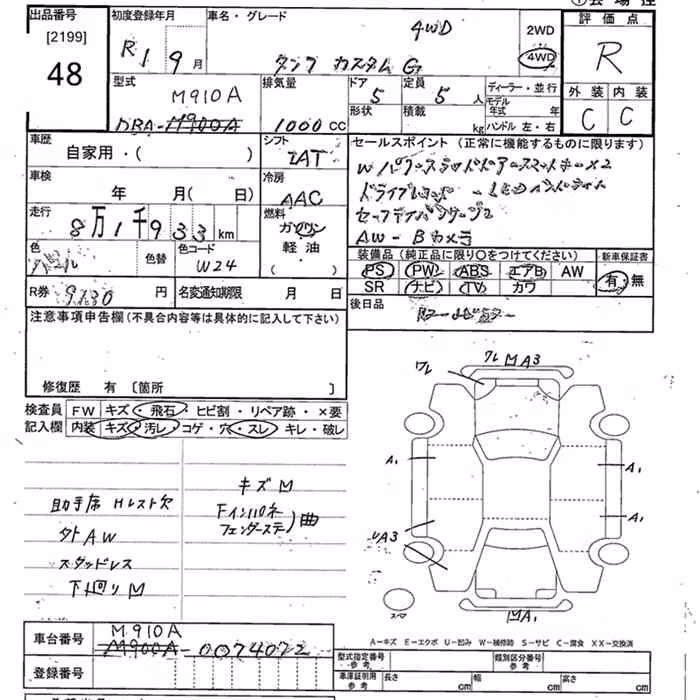 出品番号
[2199]
48
初度登録年月
R1 9月
車名・グレード
4WD
タンク カスタム G
2WD
4WD
評価点
R
外装 内装
C C
型式
M910A
DBA-M900A
排気量
1000 CC
ドア
5
形状
定員
5人
積載
kg
ディーラー・並行
モデル
年式 年
ハンドル 左・右
車歴
自家用・( )
シフト
IAT
セールスポイント (正常に機能するものに限ります)
Wパワースライドドア スマートキー×2
車検
年 月( 日)
冷房
AAC
走行
8万1千933km
燃料
ガソリン
軽油
( )
AW-Bカメラ
色
パール
色替
色コード
W24
装備品 (純正品に限り○をつけてください)
PS PW ABS エアB AW
SR ナビ TV カワ
新車保証書
有・無
R券 9130円
名変通知期限 月 日
後日品
注意事項申告欄(不具合内容等は具体的に記入して下さい)
修復歴 有 〔箇所 〕
検査員
記入欄
FW キズ・飛石・ヒビ割・リペア跡・×要
内装 キズ・汚レ・コゲ・穴・スレ・キレ・破レ
助手席 Hレスト欠
外AW
スタッドレス
下回りM
キズM
Fインパネ
フェンダーステ)曲
ワレ
ワレ MA3
A1
A1
A1
UA3
MA1
スペア
A-キズ E-エクボ U-凹み W-補修跡 S-サビ C-腐食 XX-交換済
車台番号
M910A
M900A-0074072
登録番号
型式指定番号
参考
類別区分番号
参考
車庫証明用
参考
長さ cm
幅 cm
高さ cm